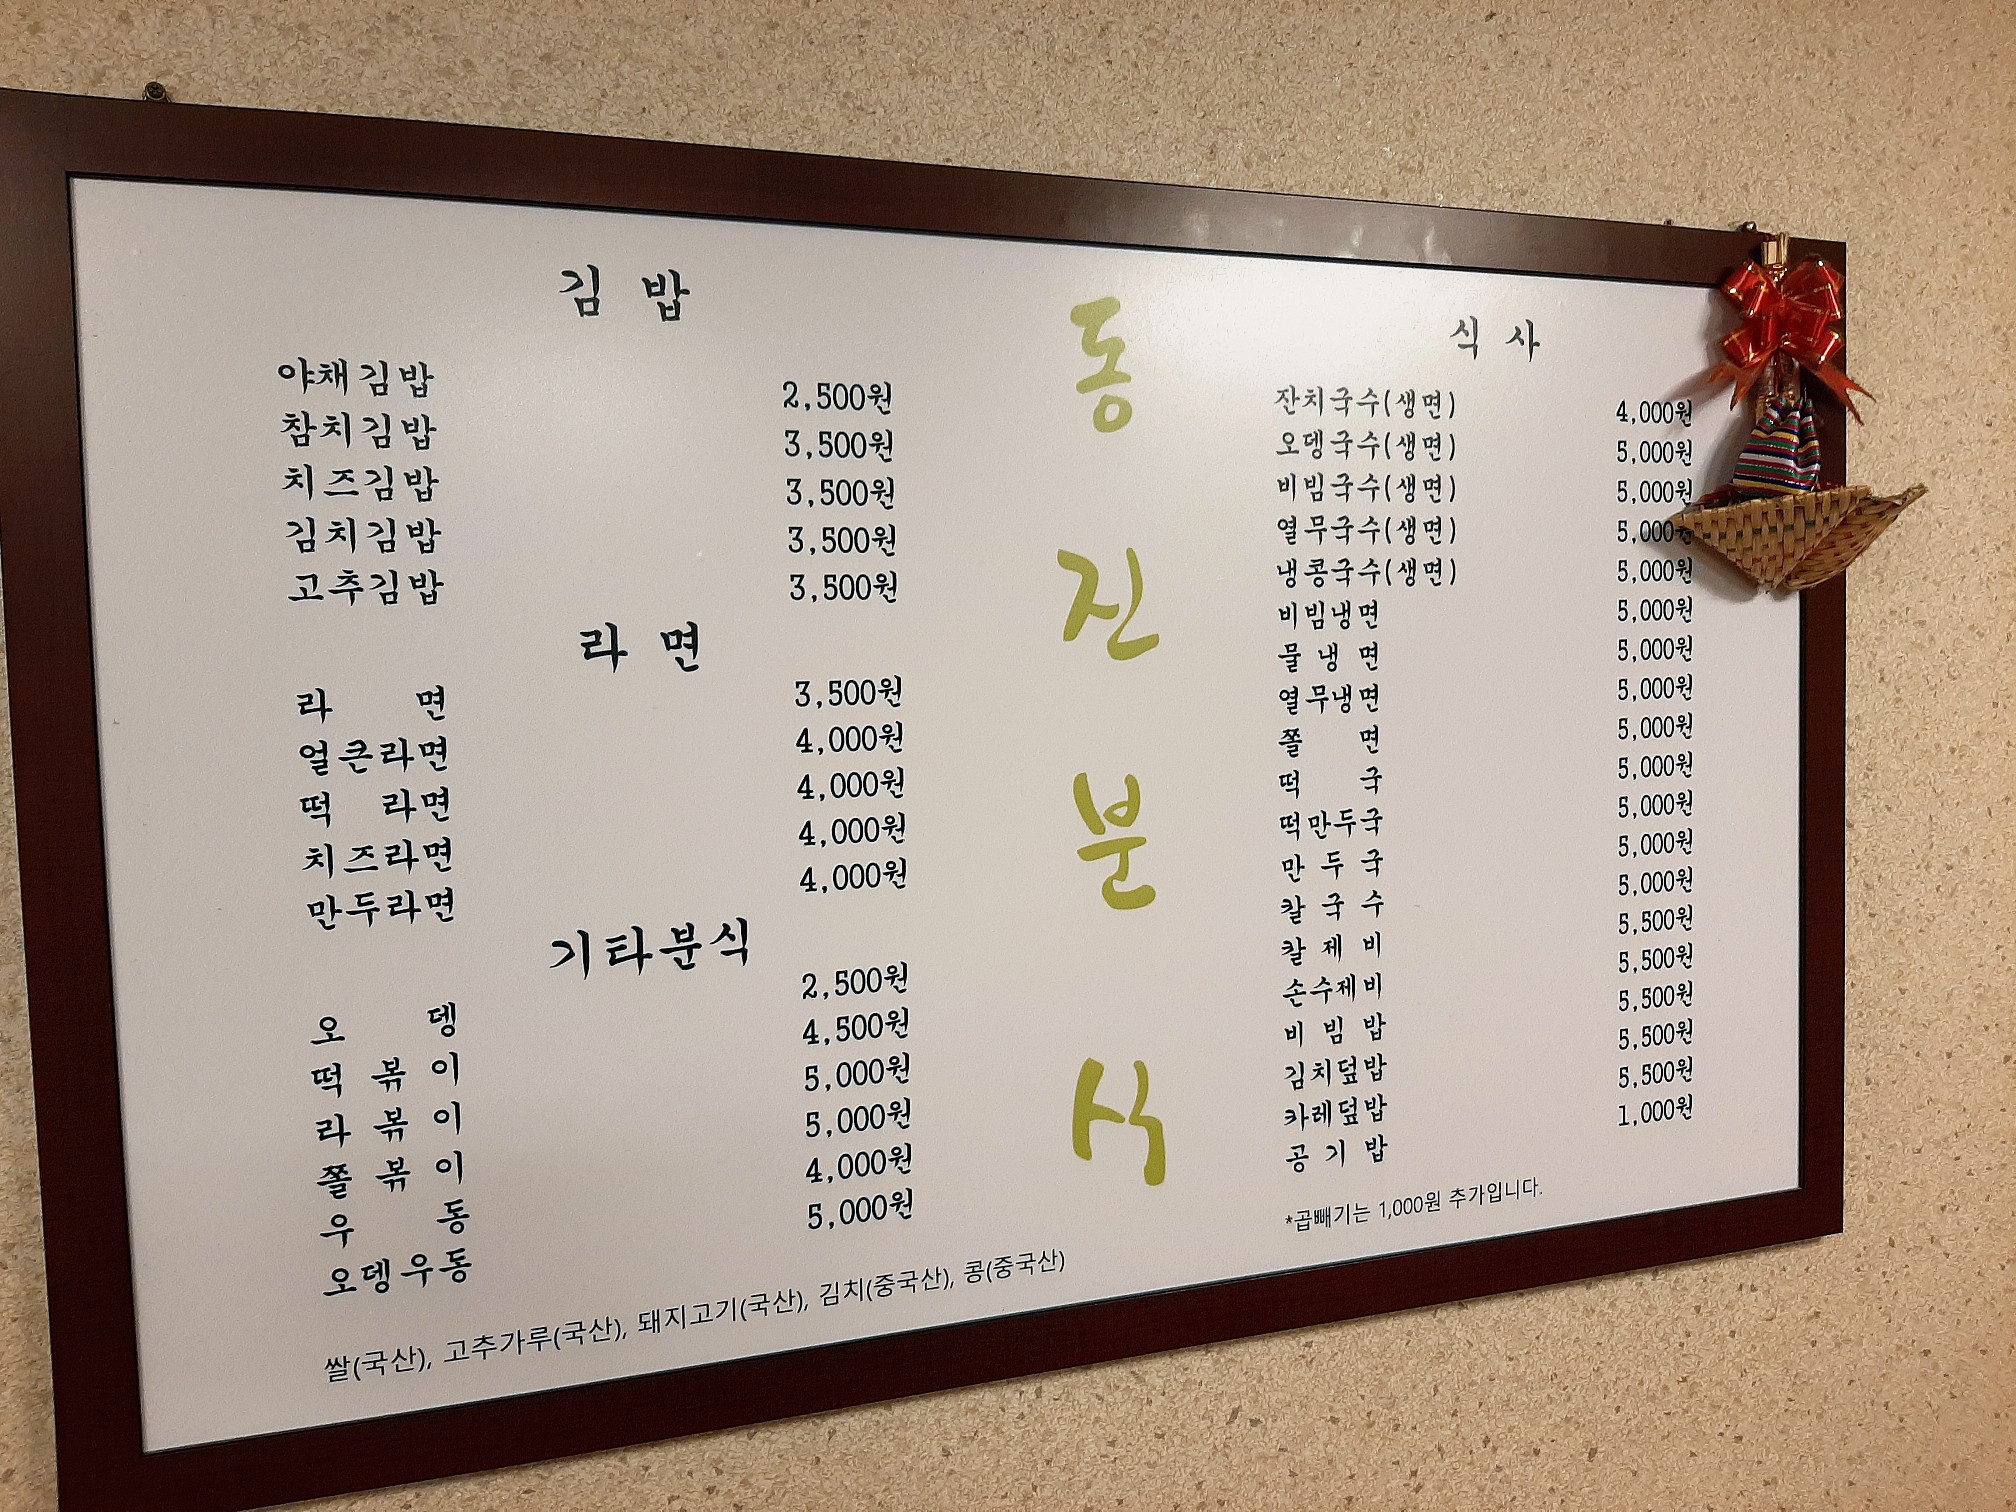 김 밥
야채김밥 2,500원
참치김밥 3,500원
치즈김밥 3,500원
김치김밥 3,500원
고추김밥 3,500원
라 면
라 면 3,500원
얼큰라면 4,000원
떡 라면 4,000원
치즈라면 4,000원
만두라면 4,000원
기타분식
오 뎅 2,500원
떡 볶 이 4,500원
라 볶 이 5,000원
쫄 볶 이 5,000원
우 동 4,000원
오뎅우동 5,000원
쌀(국산), 고추가루(국산), 돼지고기(국산), 김치(중국산), 콩(중국산)
동
진
분
식
식 사
잔치국수(생면) 4,000원
오뎅국수(생면) 5,000원
비빔국수(생면) 5,000원
열무국수(생면) 5,000원
냉콩국수(생면) 5,000원
비빔냉면 5,000원
물 냉 면 5,000원
열무냉면 5,000원
쫄 면 5,000원
떡 국 5,000원
떡만두국 5,000원
만 두 국 5,000원
칼 국 수 5,000원
칼 제 비 5,500원
손수제비 5,500원
비 빔 밥 5,500원
김치덮밥 5,500원
카레덮밥 5,500원
공 기 밥 1,000원
*곱빼기는 1,000원 추가입니다.